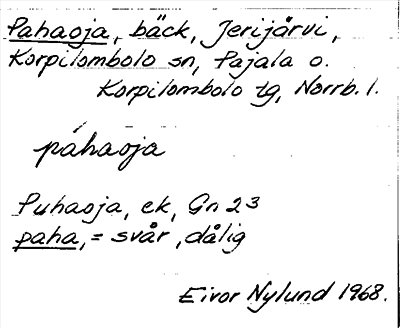 Pahaoja, bäck, Jerijärvi,
Korpilombolo sn, Pajala o.
Korpilombolo tg, Norrb. l.
páhaoja
Puhaoja, ek, Gn 23
paha, = svår, dålig
Eivor Nylund 1968.